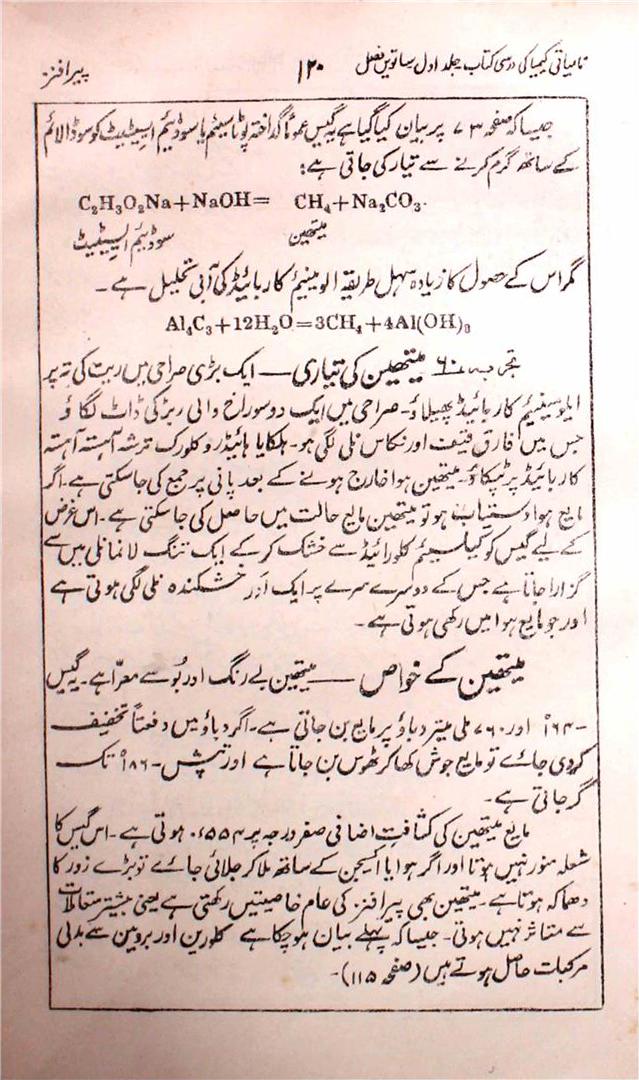 نامیاتی کیمیا کی درسی کتاب جلد اول ساتویں فصل ۱۲۰ پیرافنز
جیسا کہ صفحہ ۷۳ پر بیان کیا گیا ہے یہ گیس عموماً گداختہ پوٹاسیئم یا سوڈیئم اسیٹیٹ کو سوڈالائم
کے ساتھ گرم کرنے سے تیار کی جاتی ہے:
C₂H₃O₂Na+NaOH= CH₄+Na₂CO₃.
سوڈیئم اسیٹیٹ میتھین
مگر اس کے حصول کا زیادہ سہل طریقہ الومینیئم کاربائیڈ کی آبی تحلیل ہے۔
Al₄C₃+12H₂O=3CH₄+4Al(OH)₃
تجربہ ۶۰ میتھین کی تیاری — ایک بڑی صراحی میں ریت کی تہ پر
ایلومینیئم کاربائیڈ پھیلاؤ۔ صراحی میں ایک دو سوراخ والی ربڑ کی ڈاٹ لگاؤ
جس میں فارق قیف اور نکاس نلی لگی ہو۔ ہلکایا ہائیڈروکلورک ترشہ آہستہ آہستہ
کاربائیڈ پر ٹپکاؤ۔ میتھین ہوا خارج ہونے کے بعد پانی پر جمع کی جاسکتی ہے۔ اگر
مایع ہوا دستیاب ہو تو میتھین مایع حالت میں حاصل کی جاسکتی ہے۔ اس غرض
کے لیے گیس کو کیلسیئم کلورائیڈ سے خشک کرکے ایک تنگ لانما نلی میں سے
گزارا جاتا ہے جس کے دوسرے سرے پر ایک اَور خشکندہ نلی لگی ہوتی ہے
اور جو مایع ہوا میں رکھی ہوتی ہے۔
میتھین کے خواص — میتھین بے رنگ اور بُو سے معرّا ہے۔ یہ گیس
-۱۶۴° اور ۷۶۰ ملی میتر دباؤ پر مایع بن جاتی ہے۔ اگر دباؤ میں دفعتاً تخفیف
کردی جائے تو مایع جوش کھا کر ٹھوس بن جاتا ہے اور تپش -۱۸۶° تک
گر جاتی ہے۔
مایع میتھین کی کثافتِ اضافی صفر درجہ پر ۰،۵۵۴ ہوتی ہے۔ اس گیس کا
شعلہ منور نہیں ہوتا اور اگر ہوا یا اکسیجن کے ساتھ ملا کر جلائی جائے تو بڑے زور کا
دھماکہ ہوتا ہے۔ میتھین بھی پیرافنز کی عام خاصیتیں رکھتی ہے یعنی بیشتر متعاملات
سے متاثر نہیں ہوتی۔ جیسا کہ پہلے بیان ہوچکا ہے کلورین اور برومین سے بدلی
مرکبات حاصل ہوتے ہیں (صفحہ ۱۱۵)۔